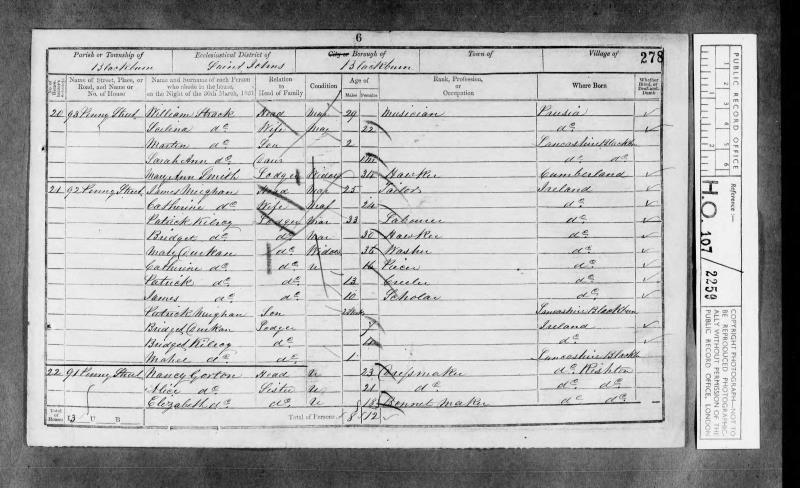 6
Parish or Township of Ecclesiastical District of City or Borough of Town of Village of 278
Blackburn Saint Johns Blackburn
Name of Street, Place, or Road, and Name or No. of House
Name and Surname of each Person who abode in the house, on the Night of the 30th March, 1851
Relation to Head of Family
Condition
Age of
Males Females
Rank, Profession, or Occupation
Where Born
Whether Blind, or Deaf-and-Dumb
20 93 Penny Street William Head Mar 29 Musician
Wife Mar 22 do
Martin do Son 2 Lancashire Blackbn
Sarah Ann do Daur do do
Mary Ann Smith Lodger Widow Hawker Cumberland
21 92 Penny Street James Meighan Head Mar 25 Tailor Ireland
Catherine do Wife Mar 24 do
Patrick Kilroy Lodger Mar 33 Labourer do
Bridget do do Mar 30 Hawker do
Mary Durkan do Widow 36 Washer do
Catherine do do U 16 Piecer do
Patrick do do 13 do
James do do 10 Scholar do
Patrick Meighan Son Lancashire Blackbn
Bridget Durkan Lodger 7 Ireland
Bridget Kilroy do do
do do 1 Lancashire Blackbn
22 91 Penny Street Nancy Gorton Head U 23 Dressmaker do Rishton
Alice do Sister U 21 do do do
Elizabeth do do U 18 Bonnet Maker do do
Total of Houses 3 U B Total of Persons 8 12
PUBLIC RECORD OFFICE
1 2 3 4 5 6
Reference :-
H.O. 107/2259
COPYRIGHT PHOTOGRAPH—NOT TO BE REPRODUCED PHOTOGRAPHICALLY WITHOUT PERMISSION OF THE PUBLIC RECORD OFFICE, LONDON